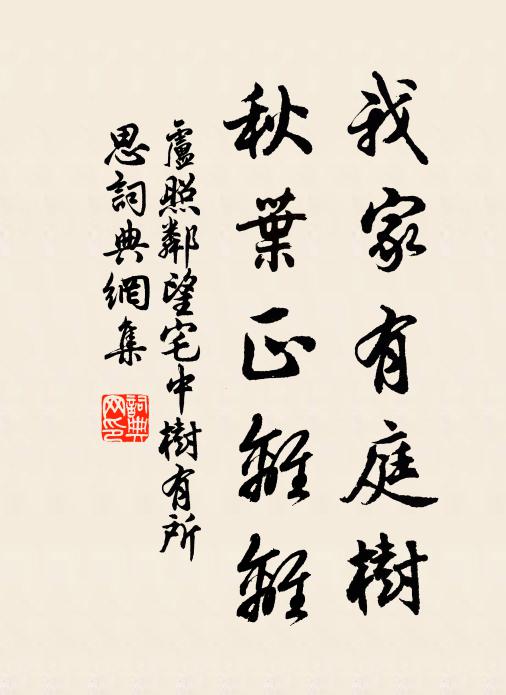 我家有庭樹
秋葉正離離
盧照鄰望宅中樹有所
思詞典網集
詞典
网印